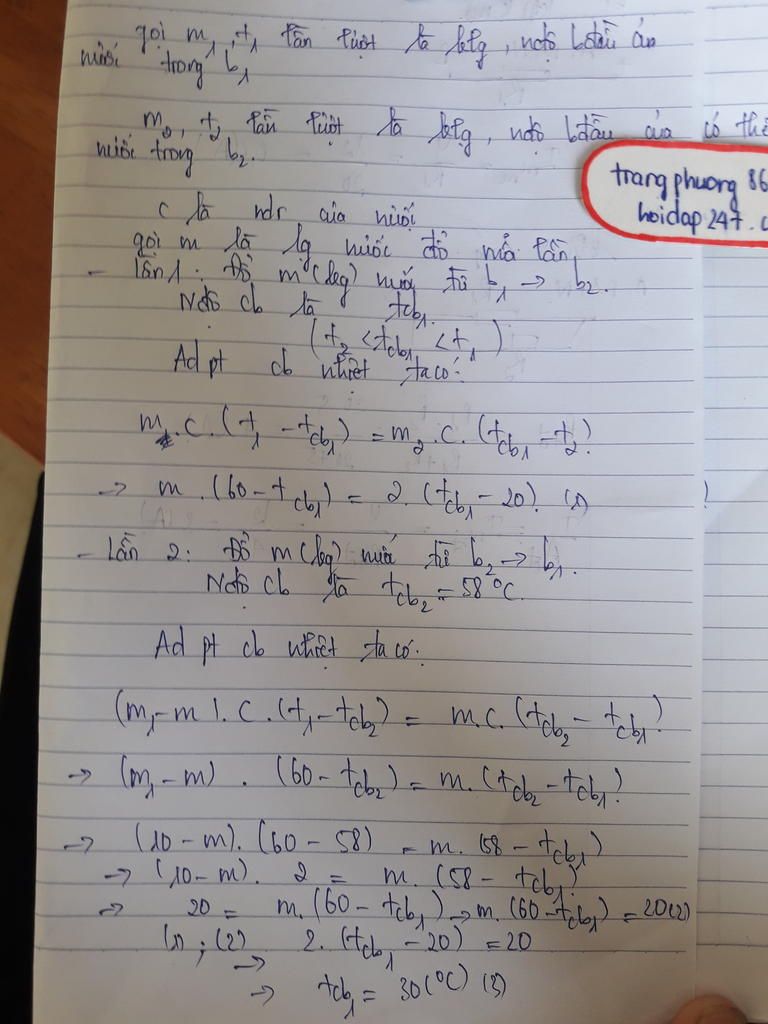 gọi m₁, t₁ lần lượt là klg, nđộ bđầu của
nước trong b₁
m₂, t₂ lần lượt là klg, nđộ bđầu của có thể
nước trong b₂.
trangphuong 86
hoidap247.c
c là ndr của nước
gọi m là lg nước đổ mỗi lần
- lần 1: Đổ m(kg) nước từ b₁ → b₂.
Nđộ cb là tcb₁.
(t₂ < tcb₁ < t₁)
Ad pt cb nhiệt ta có:
m.c.(t₁ - tcb₁) = m₂.c.(tcb₁ - t₂)
→ m.(60 - tcb₁) = 2.(tcb₁ - 20). (1)
- Lần 2: Đổ m(kg) nước từ b₂ → b₁.
Nđộ cb là tcb₂ = 58°C.
Ad pt cb nhiệt ta có:
(m₁ - m).c.(t₁ - tcb₂) = m.c.(tcb₂ - tcb₁)
→ (m₁ - m).(60 - tcb₂) = m.(tcb₂ - tcb₁)
→ (10 - m).(60 - 58) = m.(58 - tcb₁)
→ (10 - m).2 = m.(58 - tcb₁)
→ 20 = m.(60 - tcb₁) → m.(60 - tcb₁) = 20 (2)
(1); (2) → 2.(tcb₁ - 20) = 20
→ tcb₁ = 30(°C) (3)